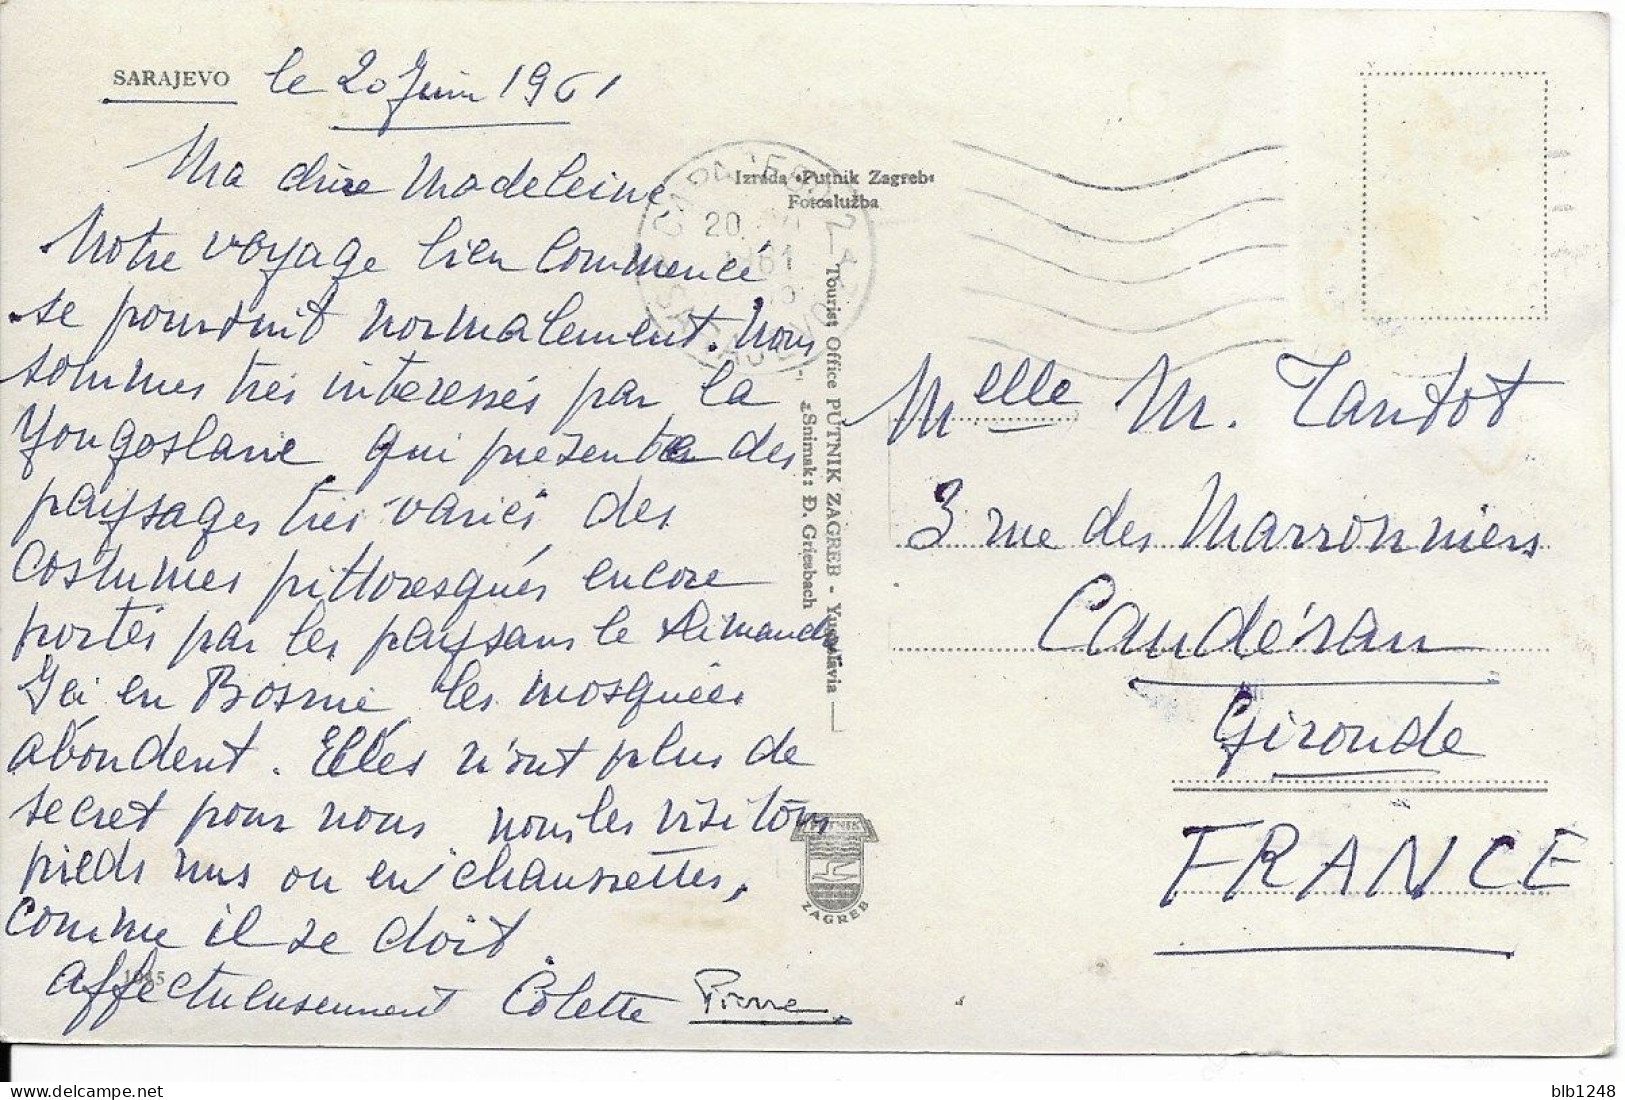 SARAJEVO le 20 Juin 1961
Ma chère Madeleine,
Notre voyage bien commencé
se poursuit normalement. Nous
sommes très interessés par la
Yougoslavie qui presente des
paysages très variés des
costumes pittoresques encore
portés par les paysans le dimanche
Ici en Bosnie les mosquées
abondent. Elles n'ont plus de
secret pour nous nous les visitons
pieds nus ou en chaussettes,
comme il se doit.
affectueusement Colette Pierre
Izrada «Putnik Zagreb»
Fotoslužba
20
1961
Tourist Office PUTNIK ZAGREB - Yugoslavia
Snimak: Đ. Griesbach
PUTNIK
ZAGREB
Melle M. Tandot
3 rue des Marronniers
Caudéran
Gironde
FRANCE
blb1248